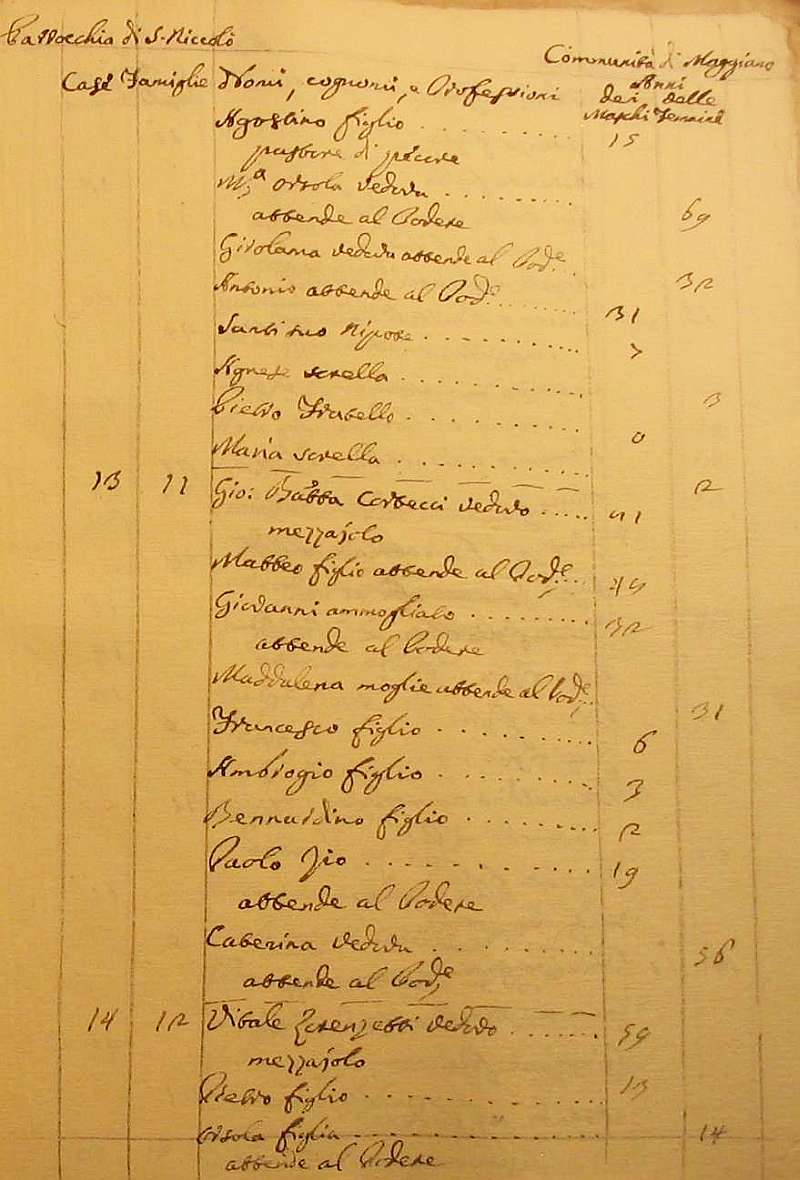 Parrocchia di S. Niccolò
Communità di Maggiano
Case Famiglie Nomi, cognomi, e Professioni Anni dei Maschi delle Femine
Agostino figlio . . . . . . . . 15
pastore di pecore
M.a Orsola vedova . . . . . . . . 69
attende al Podere
Girolama vedova attende al Pod.e . . 32
Antonio attende al Pod.e . . . . . . 31
Santi suo Nipote . . . . . . . . 7
Agnese sorella . . . . . . . . 3
Pietro Fratello . . . . . . . . 0
Maria sorella . . . . . . . . 2
13 11 Gio: Batta Corbecci vedovo . . . . .
mezzajolo
Matteo figlio attende al Pod.e . . .
Giovanni ammogliato . . . . . . . . 32
attende al Podere
Maddalena moglie attende al Pod.e . . 31
Francesco figlio . . . . . . . . 6
Ambrogio figlio . . . . . . . . 3
Bernardino figlio . . . . . . . . 2
Paolo Zio . . . . . . . . 19
attende al Podere
Caterina vedova . . . . . . . . 56
attende al Pod.e
14 12 Vitale Lorenzetti vedovo . . . . . . 59
mezzajolo
Pietro figlio . . . . . . . . 13
Orsola figlia . . . . . . . . 14
attende al Podere